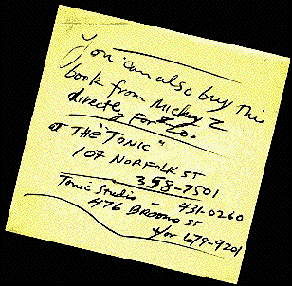 You can also buy this
book from Mickey Z
directly for
at THE "TONIC"
107 NORFOLK ST
358-7501
Tonic Studio 931-0260
476 BROOME ST
679-9201